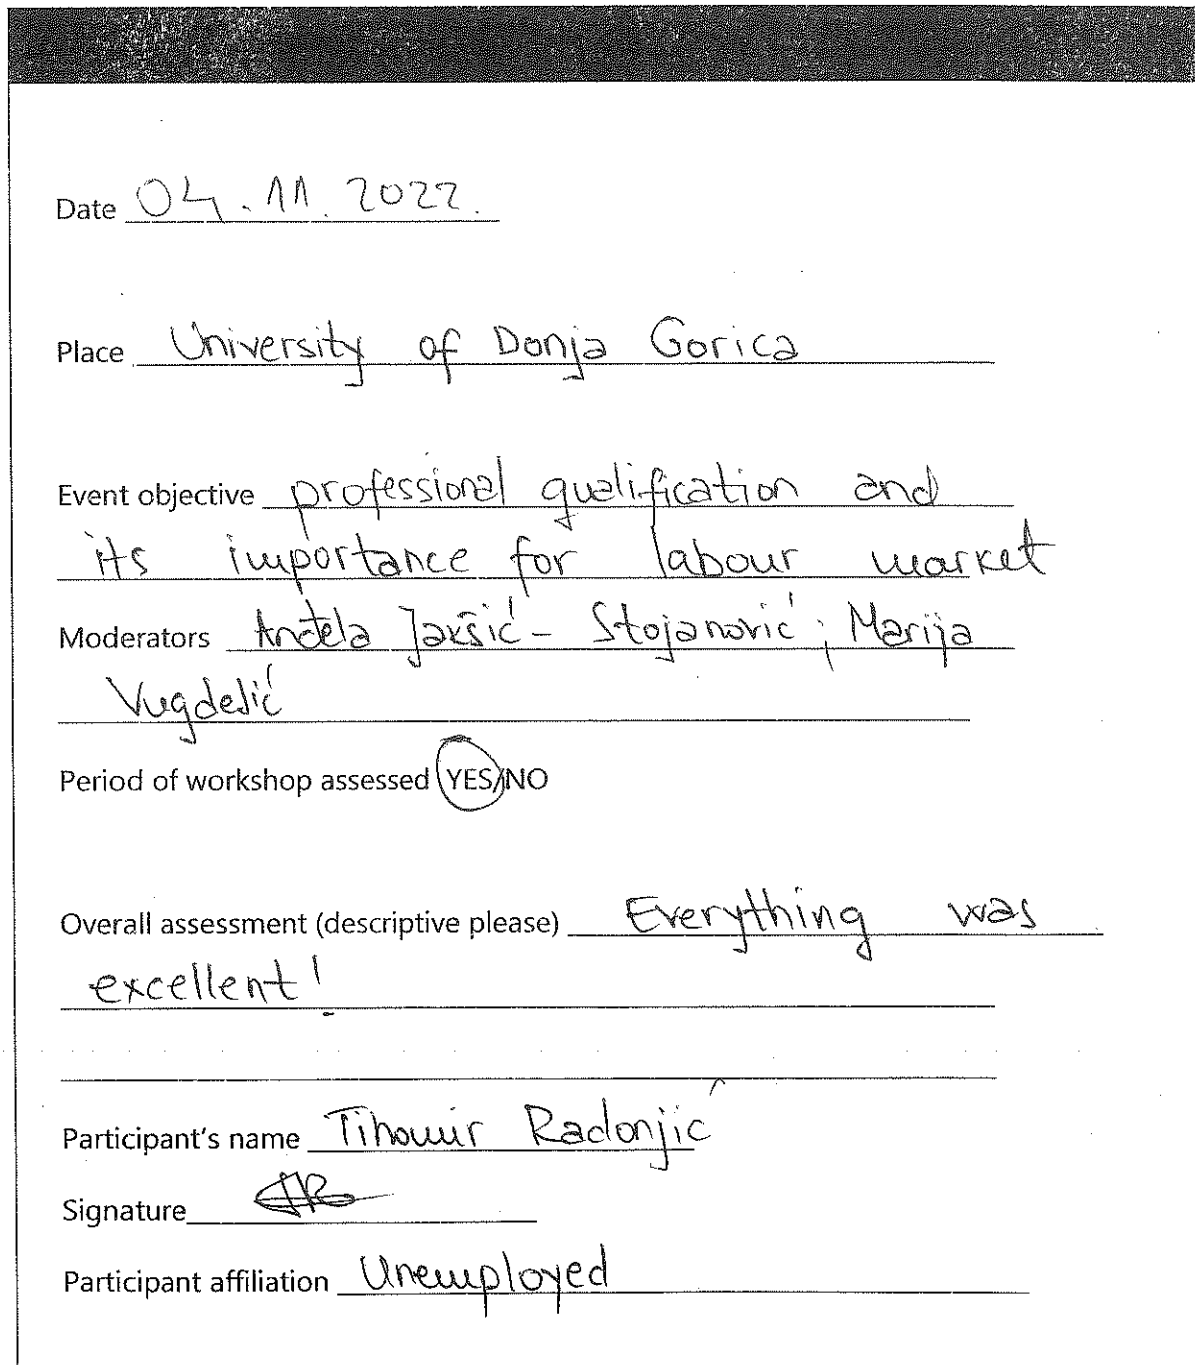 Date 04.11.2022.
Place University of Donja Gorica
Event objective professional qualification and
its importance for labour market
Moderators Anđela Jakšić - Stojanović; Marija
Vugdelić
Period of workshop assessed YES/NO
Overall assessment (descriptive please) Everything was
excellent!
Participant's name Tihomir Radonjić
Signature
Participant affiliation Unemployed